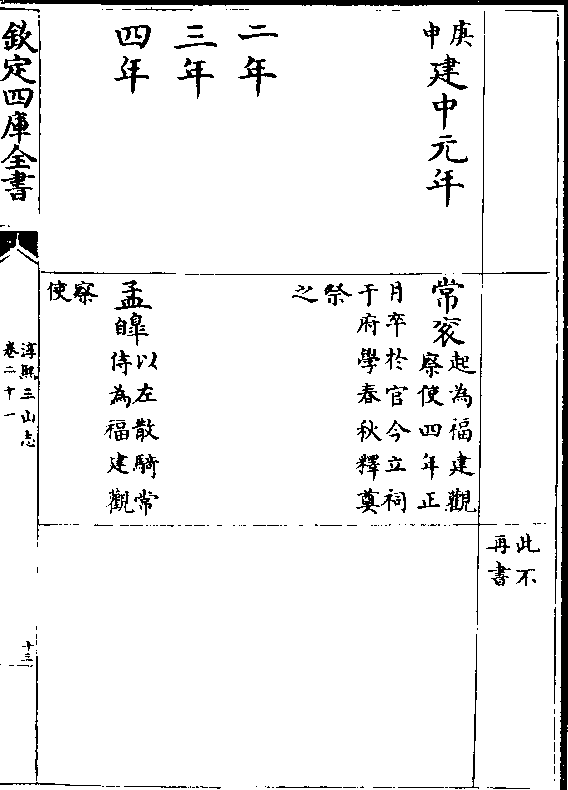 此不
再書
庚
申
建中元年
常衮
起為福建觀
察使四年正
月卒於官今立祠
于府學春秋釋奠
祭
之
二年
三年
四年
孟皥
自以左散騎常
侍為福建觀
察
使
欽定四庫全書
淳熙三山志
卷二十一
十三